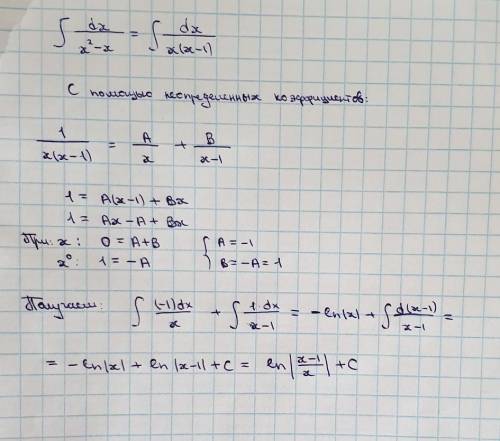 ∫ dx/(x²-x) = ∫ dx/(x(x-1))
С помощью неопределенных коэффициентов:
1/(x(x-1)) = A/x + B/(x-1)
1 = A(x-1) + Bx
1 = Ax - A + Bx
При: x: 0 = A+B { A = -1
x⁰: 1 = -A B = -A = 1
Получаем: ∫ (-1)dx/x + ∫ 1 dx/(x-1) = -ln|x| + ∫ d(x-1)/(x-1) =
= -ln|x| + ln|x-1| + C = ln|(x-1)/x| + C